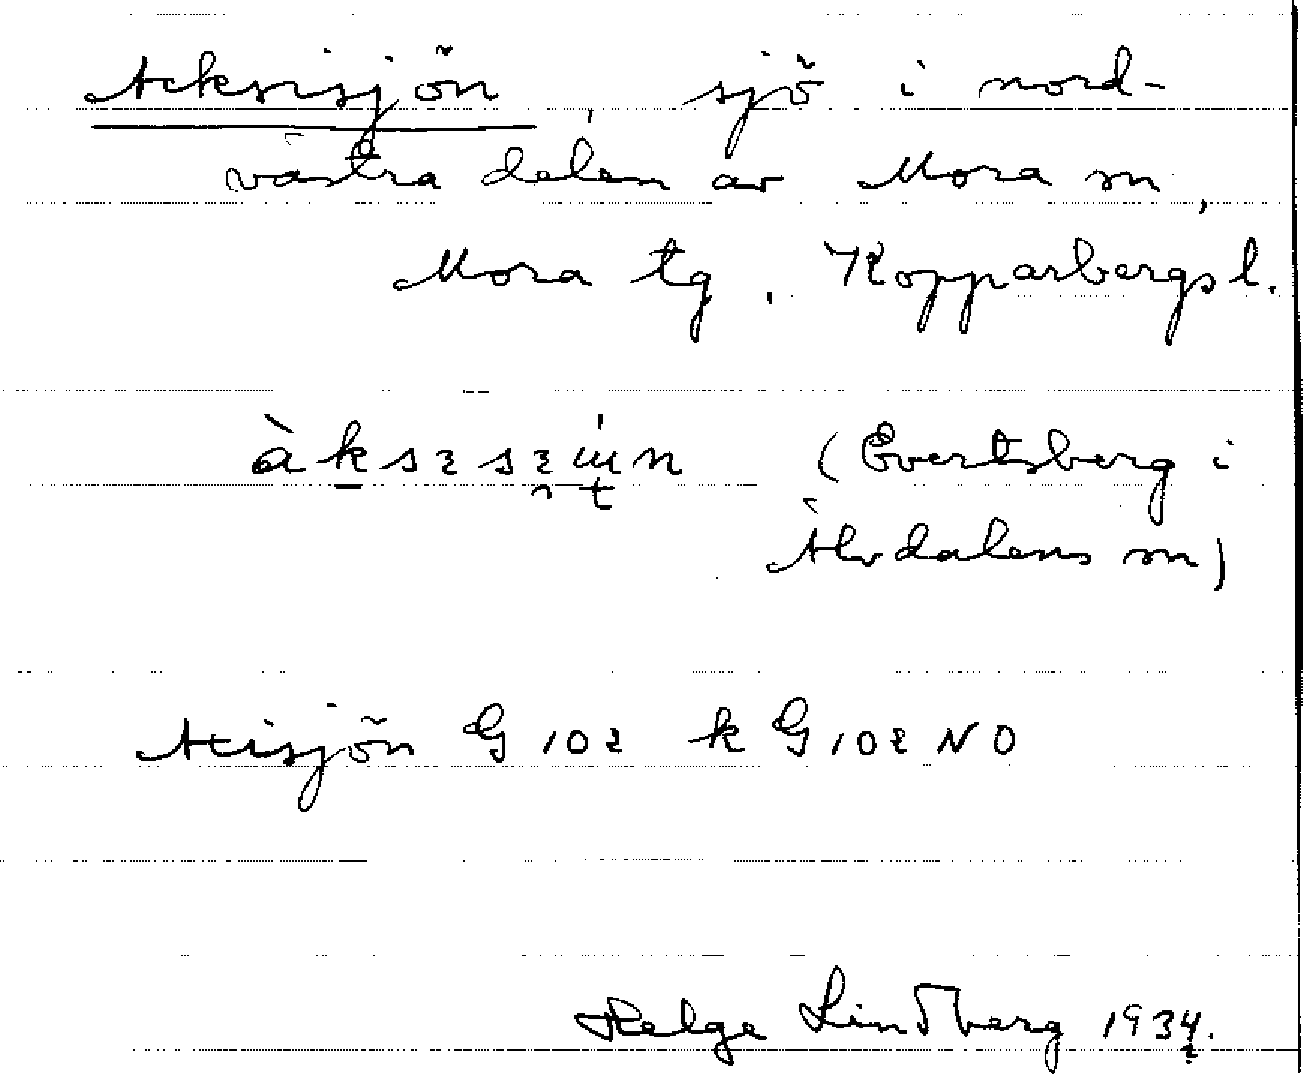 Acksisjön, sjö i nord-
västra delen av Mora sn,
Mora tg, Kopparbergs l.
(Evertsberg i
Älvdalens sn)
Axisjön G 102 k G 102 NO
Helge Lindberg 1934.